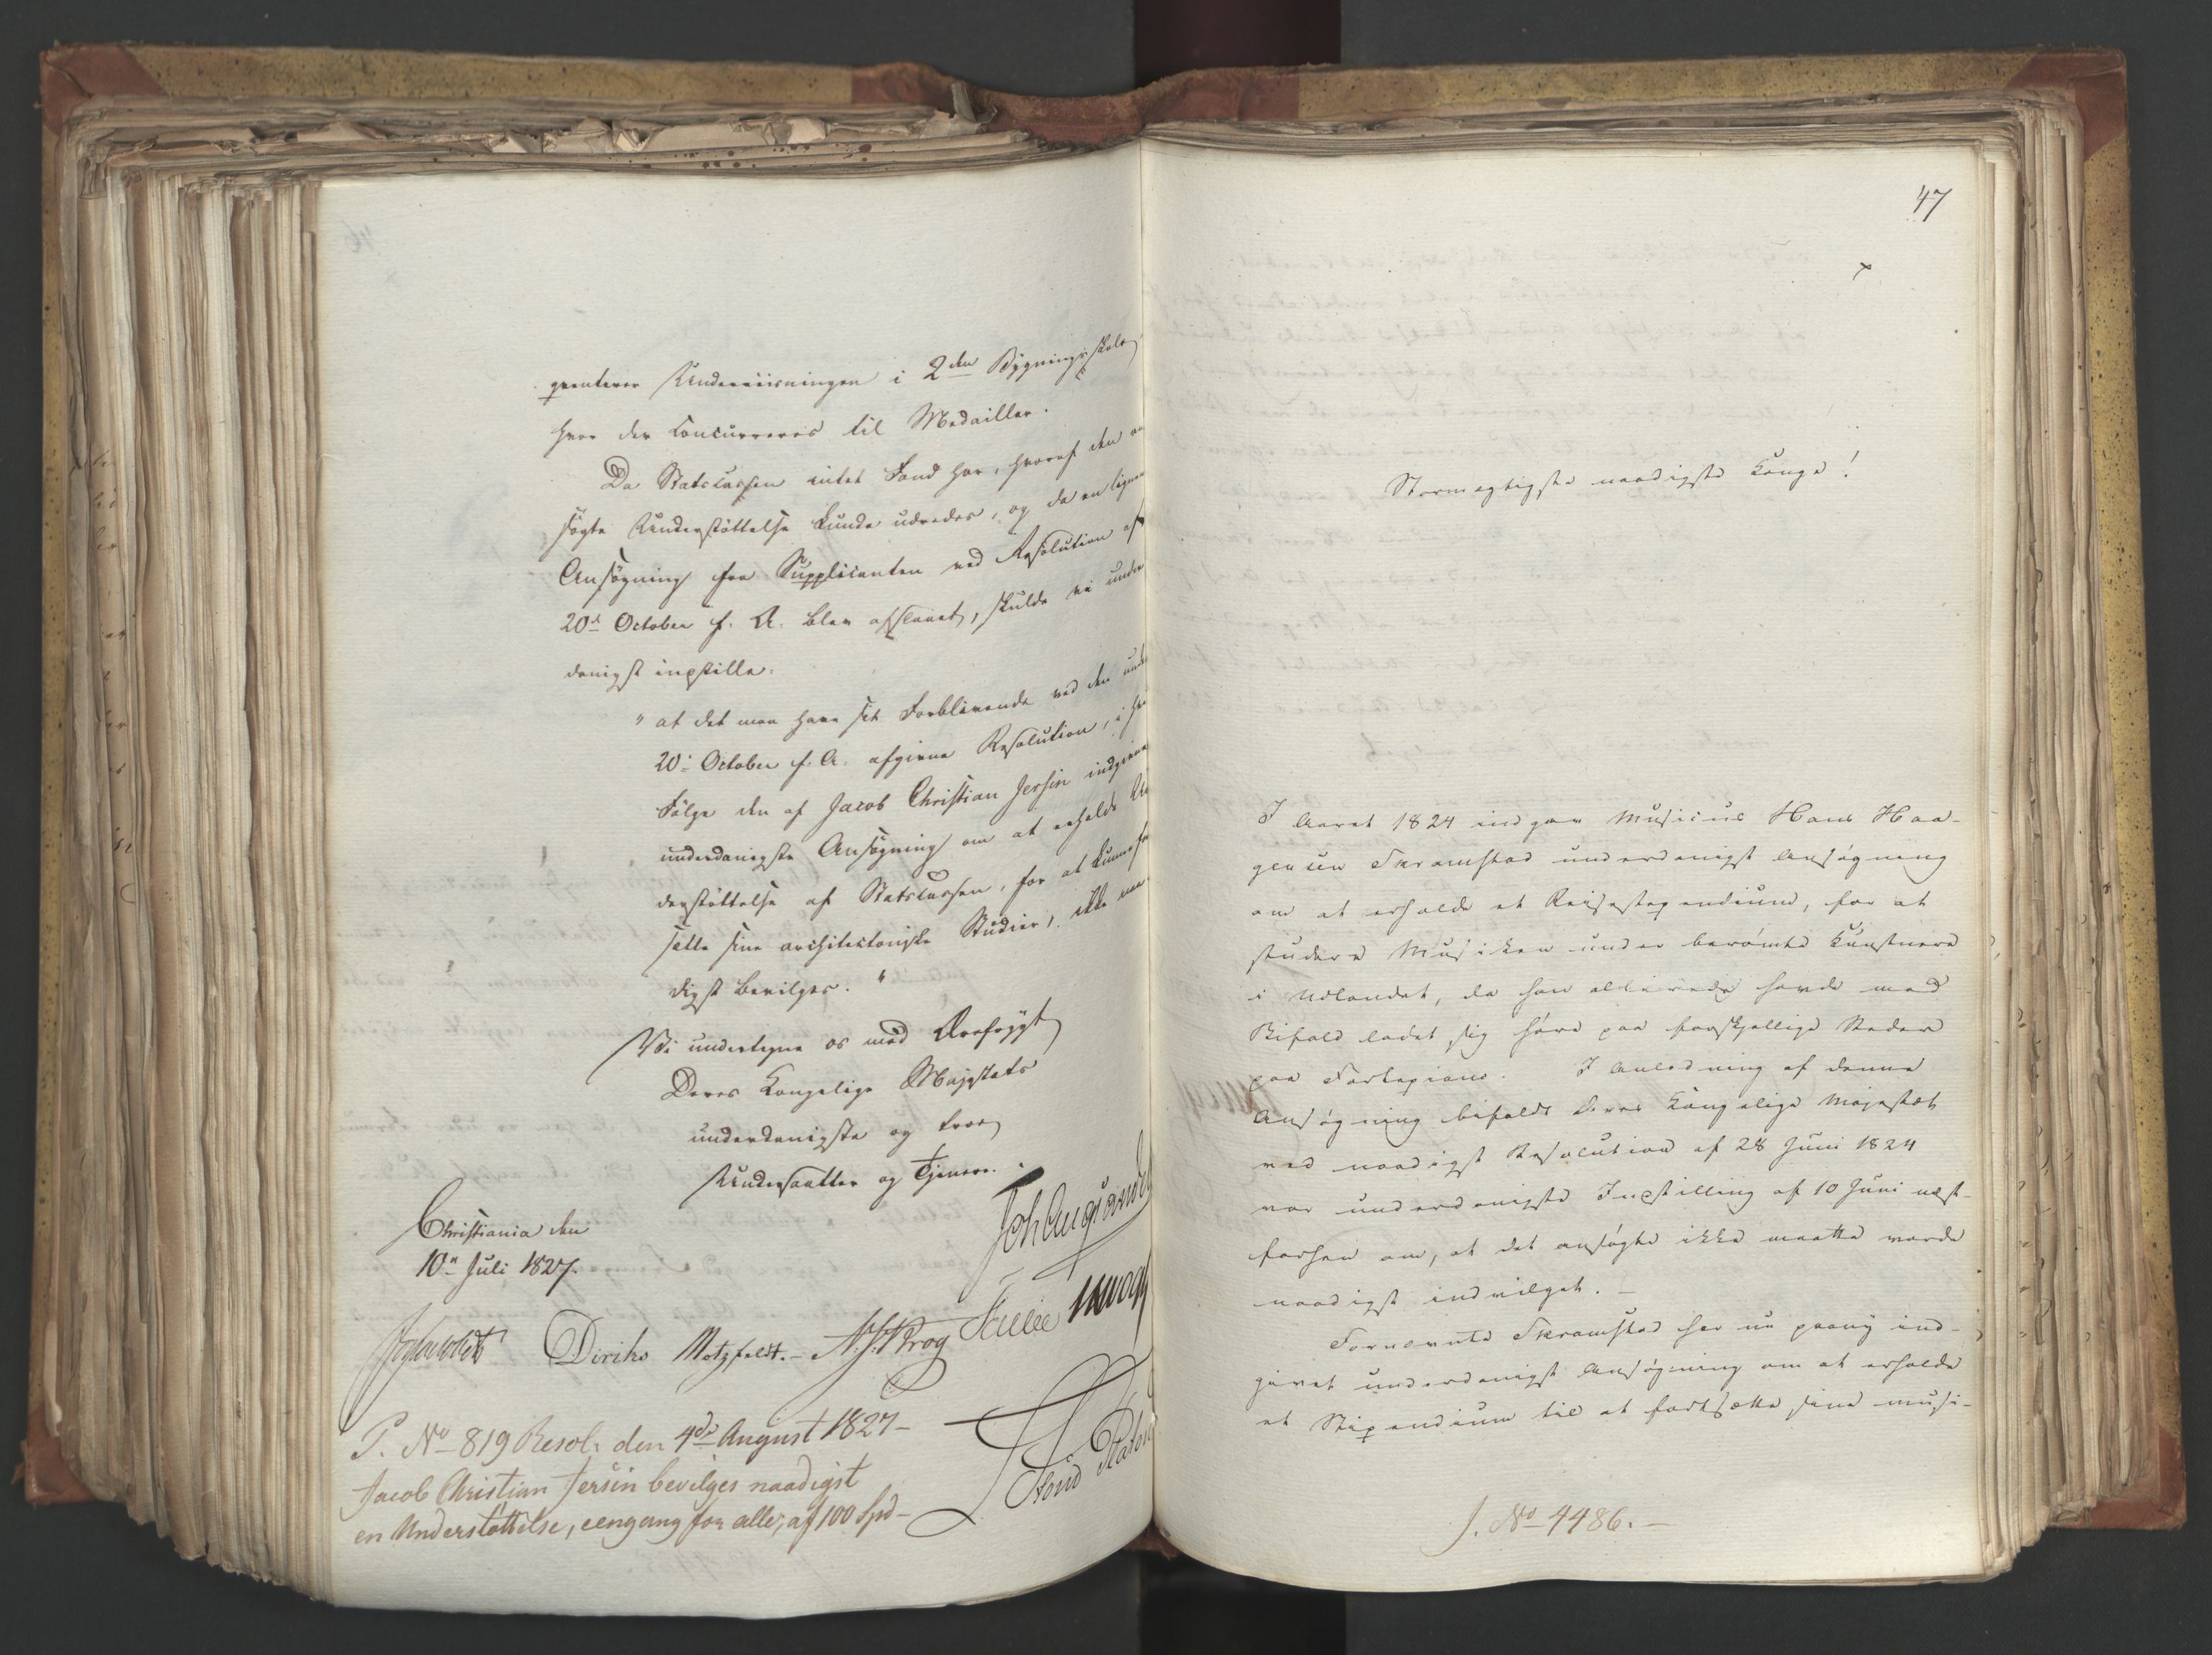 qventerer Underviisningen i 2den Bygningsskole
hvor der concurreres til Medailler.
Da Statscassen intet Fond har, hvoraf den an
søgte Understøttelse kunde udredes, og da en lignen
Ansøgning fra Supplicanten ved Resolution af
20de October f. A. blev afslaaet, skulde vi under
danigst indstille:
"at det maa have sit Forblivende ved den under
20de October f. A. afgivne Resolution, i Hvis
Følge den af Jacob Christian Jersin indgivne
underdanigste Ansøgning om at erholde Un
derstøttelse af Statscassen, for at kunne fort
sætte sine architectoniske Studier, ikke naa
digst bevilges."
Vi undertegne os med Ærefrygt
Deres Kongelige Majestæts
underdanigste og troe
Undersaatter og Tjenere.
Christiania den
10de Juli 1827.
Diriks Motzfeldt. N. J. Krog
P. No 819 Resol. den 4de August 1827 -
Jacob Christian Jersin bevilges naadigst
en Understøttelse, eengang for alle, af 100 Spd -
47
Stormægtigste naadigste Konge!
I Aaret 1824 indgav Musicus Hans Haa-
gensen Skramstad underdanigst Ansøgning
om at erholde et Reisestependium, for at
studere Musiken under berømte Kunstnere
i Udlandet, da han allerede havde med
Bifald ladet sig høre paa forskjellige Steder
paa Fortepiano. I Anledning af denne
Ansøgning bifaldt Deres Kongelige Majestæt
ved naadigst Resolution af 28 Juni 1824
vor underdanigste Indstilling af 10 Juni næst-
forhen om, at det ansøgte ikke maatte vorde
naadigst indvilget. -
Fornævnte Skramstad har nu paany ind-
givet underdanigst Ansøgning om at erholde
et Stipendium til at fortsætte sine musi-
J. No 4486. -